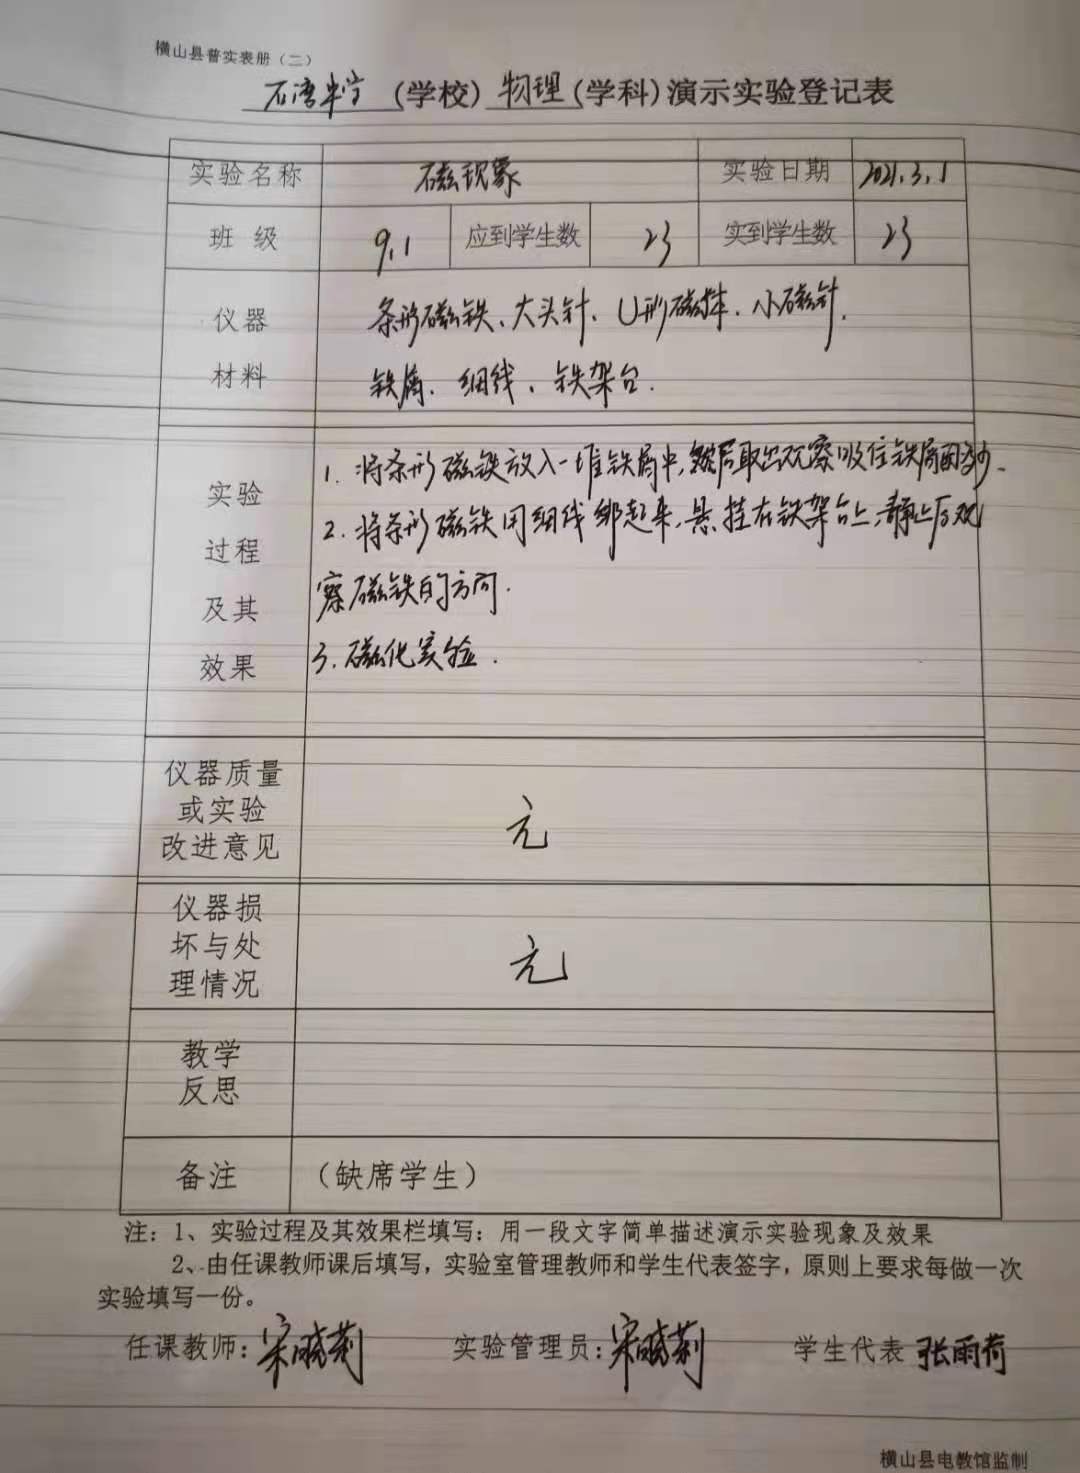 横山县普实表册（二）
石湾中学（学校）物理（学科）演示实验登记表
实验名称 磁现象 实验日期 2021.3.1
班 级 9.1 应到学生数 23 实到学生数 23
仪器 条形磁铁、大头针、U形磁体、小磁针、
材料 铁屑、细线、铁架台.
实验 1. 将条形磁铁放入一堆铁屑中,然后取出观察吸住铁屑的多少.
过程 2. 将条形磁铁用细线绑起来,悬挂在铁架台上,静止后观
及其 察磁铁的方向.
效果 3. 磁化实验.
仪器质量
或实验 无
改进意见
仪器损
坏与处 无
理情况
教学
反思
备注 （缺席学生）
注：1、实验过程及其效果栏填写：用一段文字简单描述演示实验现象及效果
2、由任课教师课后填写，实验室管理教师和学生代表签字，原则上要求每做一次
实验填写一份。
任课教师：宋晓莉 实验管理员：宋晓莉 学生代表 张雨荷
横山县电教馆监制